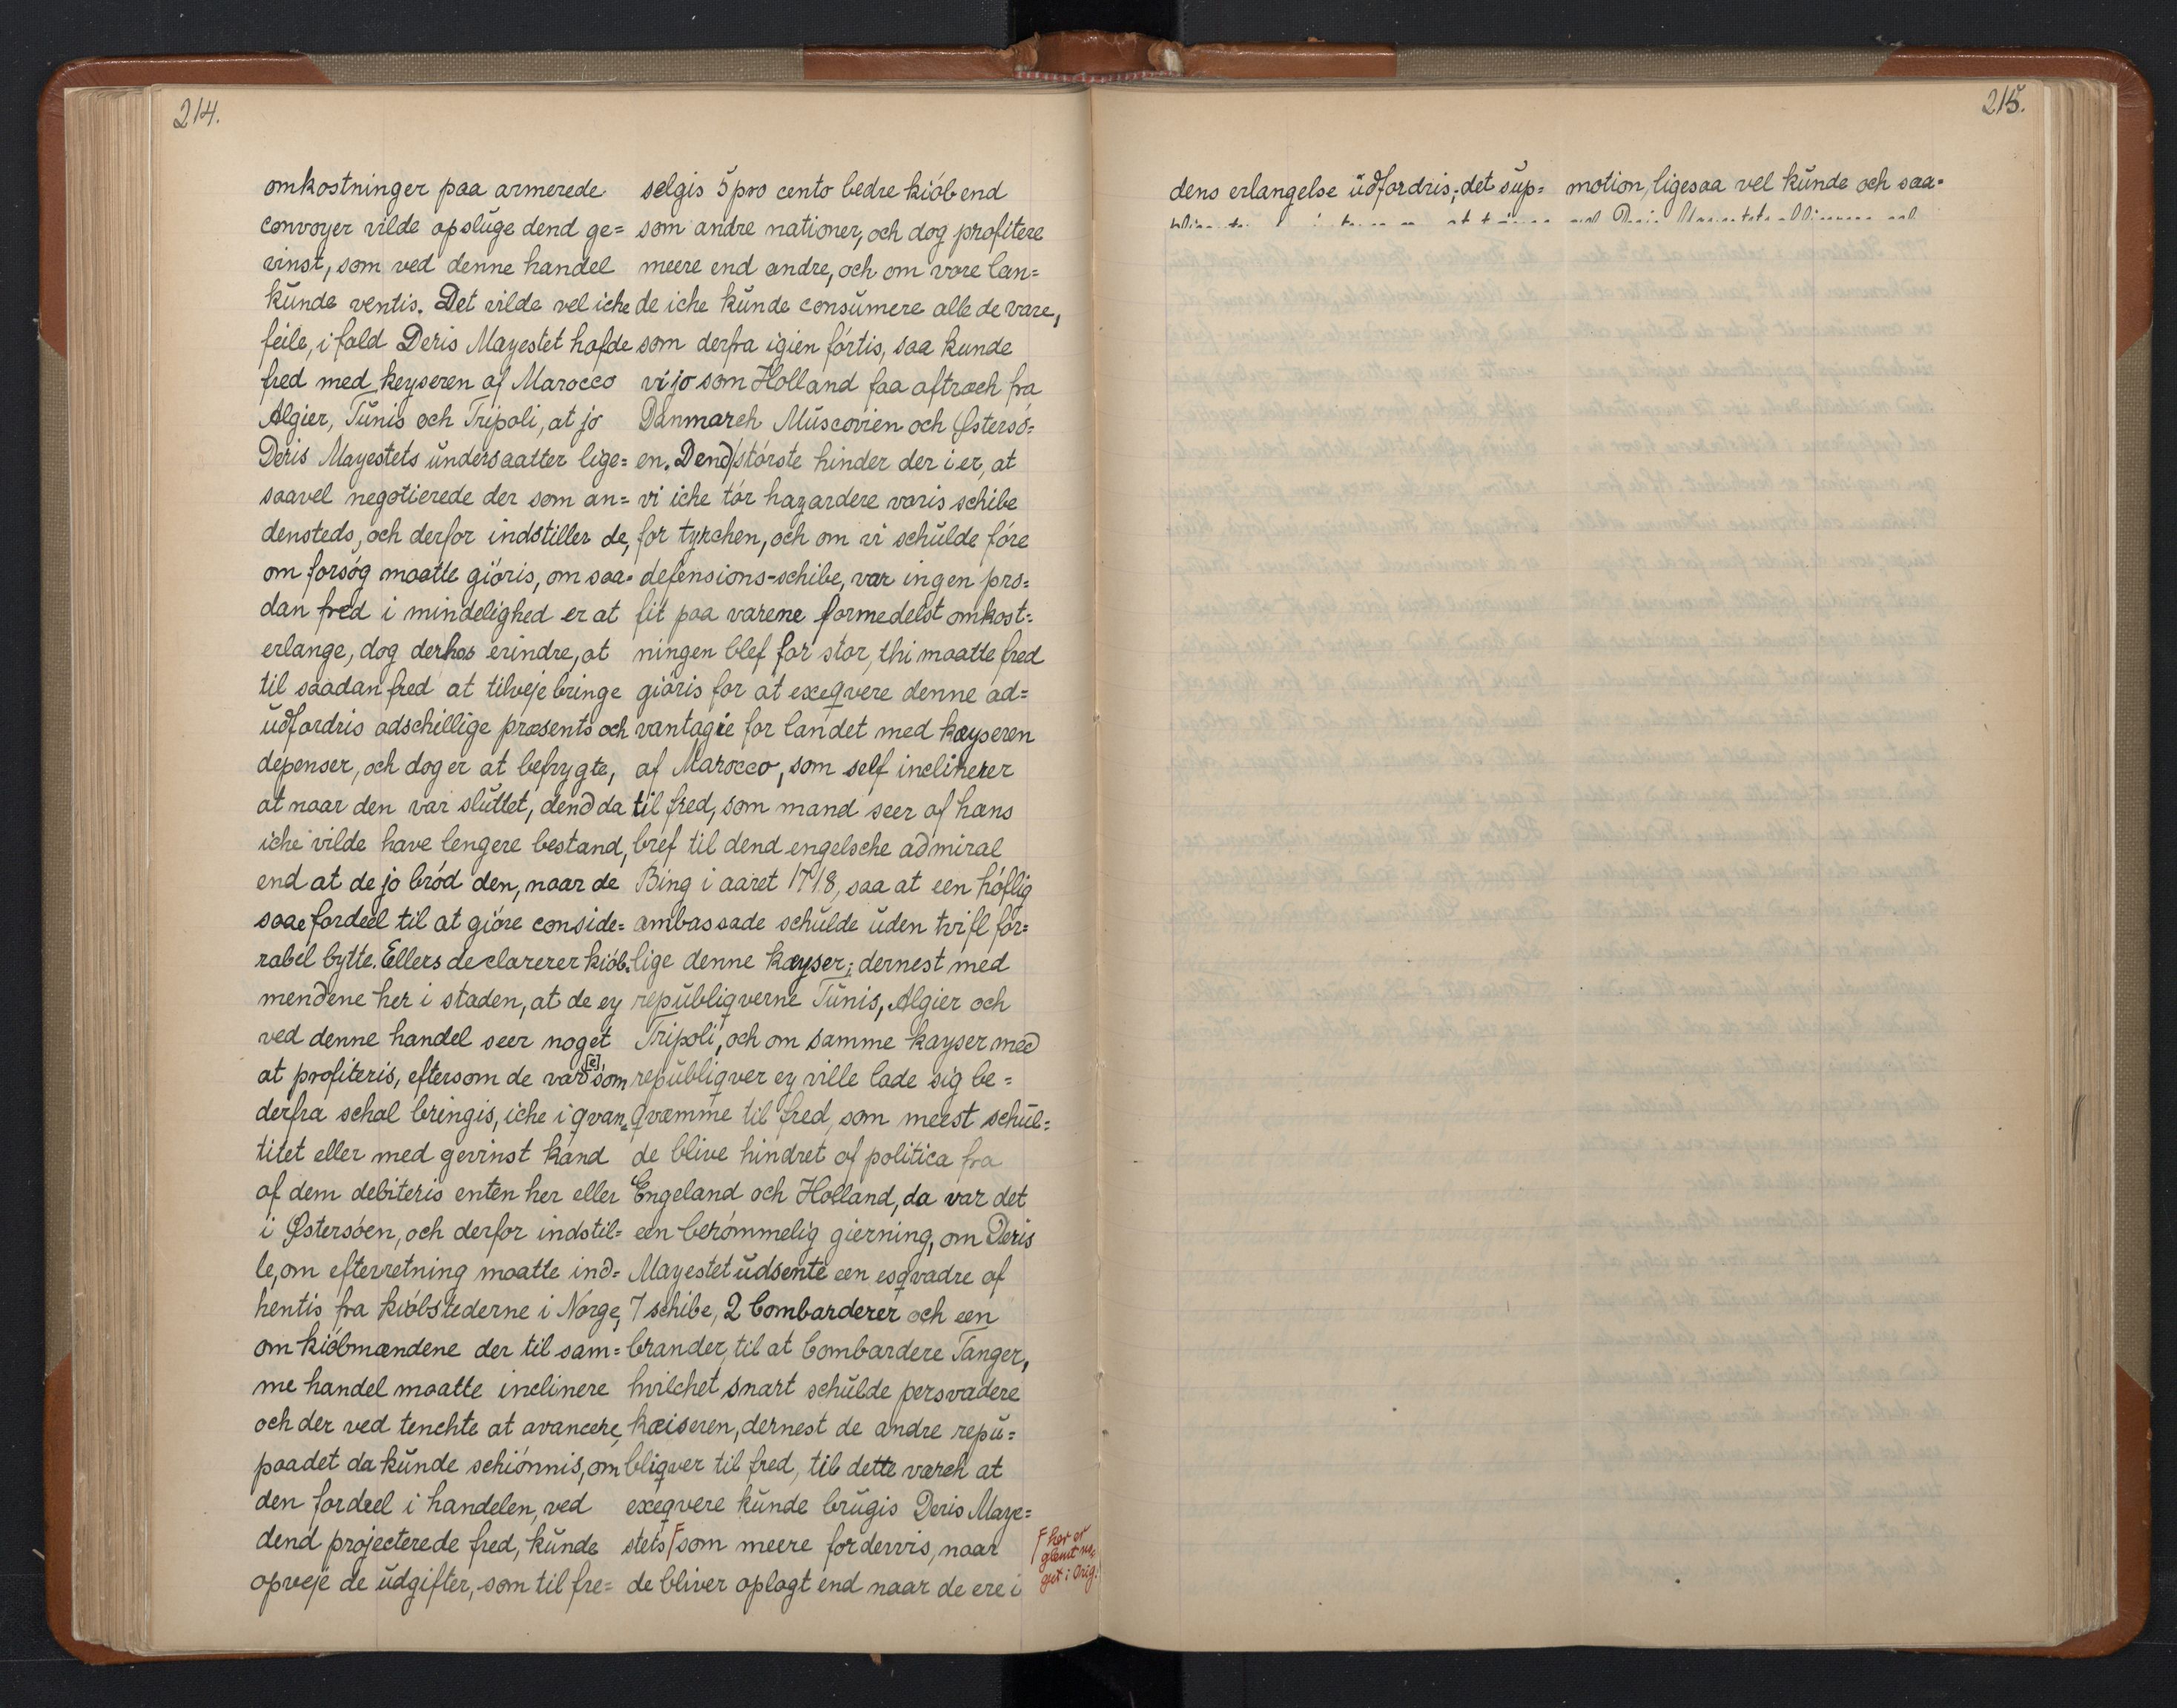 214.
omkostninger paa armerede
convoyer vilde opsluge dend ge=
vinst, som ved denne handel
kunde ventis. Det vilde vel iche
feile, ifald Deris Mayestet hafde
fred med keyseren af Marocco
Algier, Tunis och Tripoli, at jo
Deris Mayestets undersaatter lige=
saavel negotierede der som an=
densteds, och derfor indstiller de,
om forsøg maatte giøris, om saa=
dan fred i mindelighed er at
erlange, dog derhos erindre, at
til saadan fred at tilvejebringe
udfordris adschillige præsents och
depenser, och dog er at befrygte,
at naar den var sluttet, dend da
iche vilde have lengere bestand,
end at de jo brød den, naar de
saae fordeel til at giøre conside=
rabel bytte. Ellers declarerer kiøb=
mendene her i staden, at de ey
ved denne handel seer noget
at profiteris, eftersom de var[e] som
derfra schal bringis, iche i qvan=
titet eller med gevinst kand
af dem debiteris enten her eller
i Østersøen, och derfor indstil=
le, om efterretning maatte ind=
hentis fra kiøbstederne i Norge,
om kiøbmændene der til sam=
me handel maatte inclinere
och der ved tenchte at avancere,
paadet da kunde schiønnis, om
den fordeel i handelen, ved
dend projecterede fred, kunde
opveje de udgifter, som til fre=
selgis 5 pro cento bedre kiøb end
som andre nationer, och dog profitere
meere end andre, och om vore lan=
de iche kunde consumere alle de vare,
som derfra igienførtis, saa kunde
vi jo som Holland faa aftræch fra
Danmarch Muscovien och Østersø=
en. Dend største hinder der i er, at
vi iche tør hazardere voris schibe
for tyrchen, och om vi schulde føre
defensions-schibe, var ingen pro=
fit paa varene formedelst omkost=
ningen blef for stor, thi maatte fred
giøris for at exeqvere denne ad=
vantagie for landet med kayseren
af Marocco, som self inclinerer
til fred, som mand seer af hans
bref til dend engelsche admiral
Bing i aaret 1718, saa at een høflig
ambassade schulde uden tvifl for=
lige denne kayser; dernest med
republiqverne Tunis, Algier och
Tripoli, och om samme kayser med
republiqver ey ville lade sig be=
qvæmme til fred, som meest schul=
de blive hindret af politica fra
Engeland och Holland, da var det
een berømmelig gierning, om Deris
Mayestet udsente een esqvadre af
7 schibe, 2 bombarderer och een
brander, til at bombardere Tanger,
hvilchet snart schulde persvadere
kæiseren, dernest de andre repu=
bliqver til fred, til dette værch at
exeqvere kunde brugis Deris Maye=
stets F som meere fordervis, naar
de bliver oplagt end naar de ere i
F her er
glemt no=
get i Orig.
215.
dens erlangelse udfordris; det sup=
motion, ligesaa vel kunde och saa=